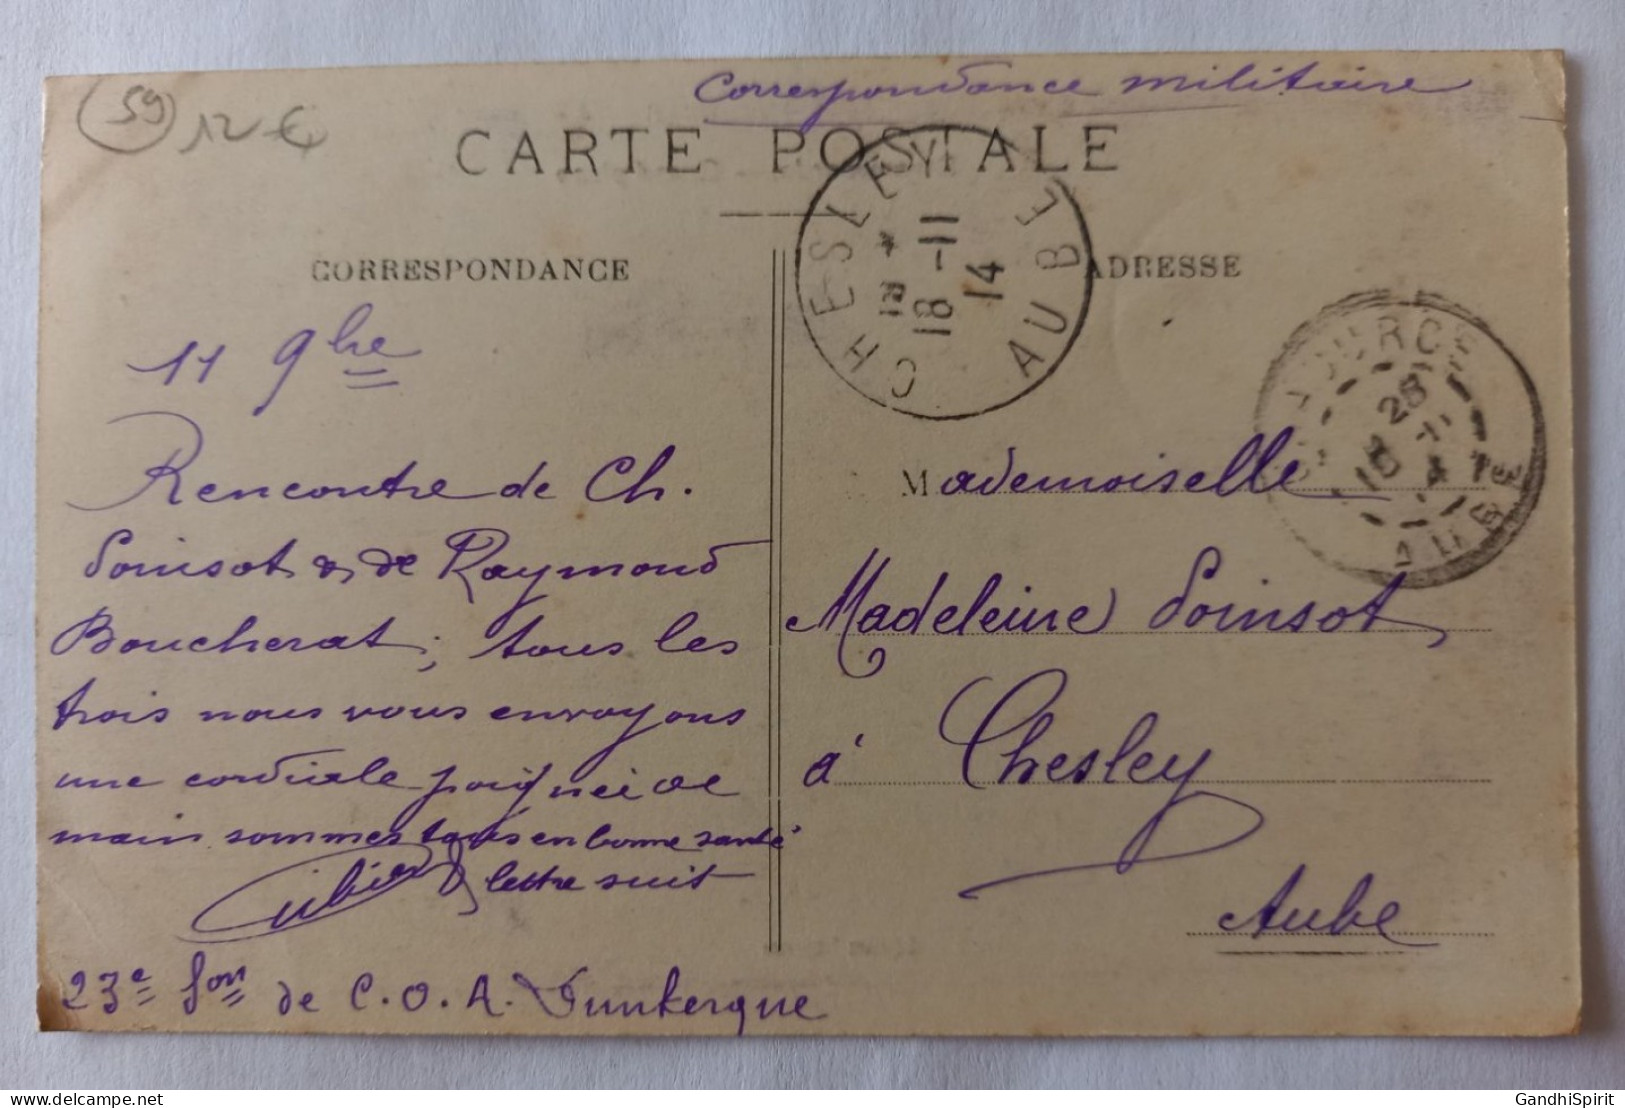 59
12 €
Correspondance militaire
CARTE POSTALE
CORRESPONDANCE
ADRESSE
CHESLEY AUBE
18 -11
14
CHAOURCE AUBE
11 9bre
Rencontre de Ch.
Poinsot & de Raymond
Boucherat; tous les
trois nous vous envoyons
une cordiale poignée de
main sommes tous en bonne santé
lettre suit
23e Son de C.O.A. Dunkerque
Mademoiselle
Madeleine Poinsot
à Chesley
Aube
GandhiSpirit